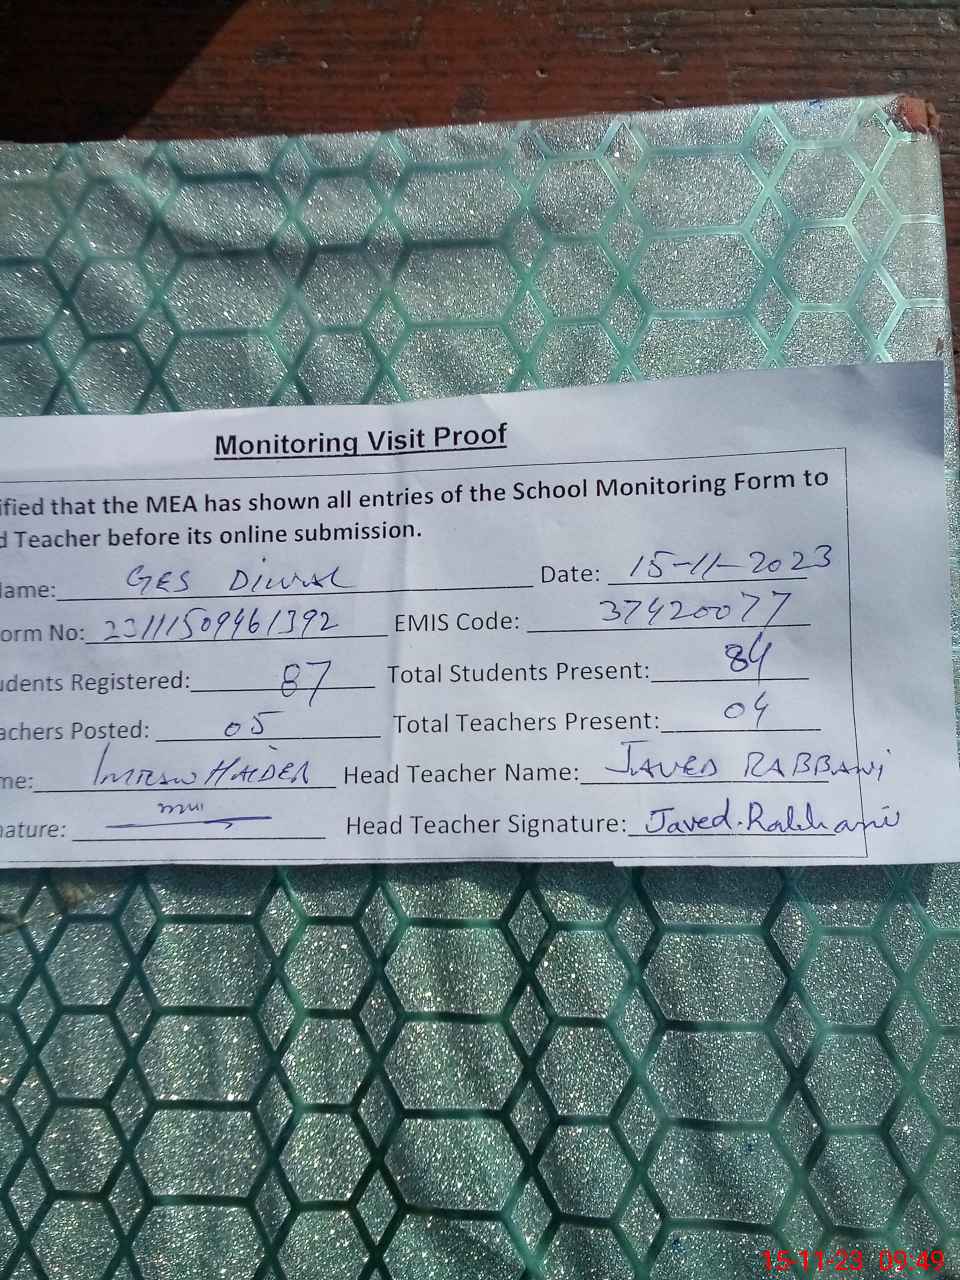 Monitoring Visit Proof
ified that the MEA has shown all entries of the School Monitoring Form to
d Teacher before its online submission.
ame: GES Date: 15-11-2023
orm No: 23111509461392 EMIS Code: 37420077
udents Registered: 87 Total Students Present: 84
achers Posted: 05 Total Teachers Present: 04
me: IMRAN HAIDER Head Teacher Name: JAVED RABBANI
nature: Head Teacher Signature: Javed Rabbani
15-11-23 09:49